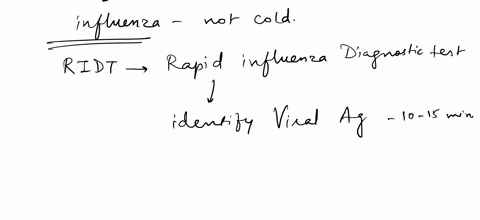 influenza - not cold.
RIDT → Rapid influenza Diagnostic test
↓
identify Viral Ag - 10-15 min